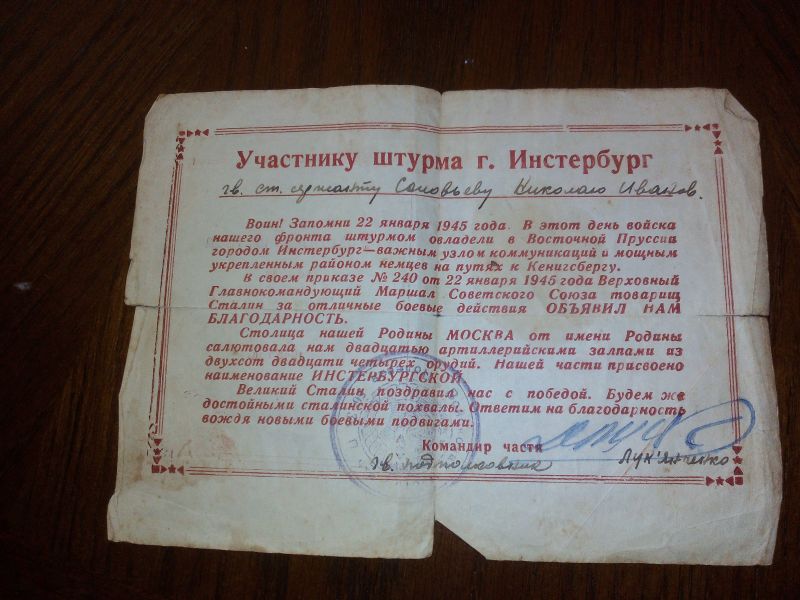 Участнику штурма г. Инстербург
гв. ст. сержанту Соловьеву Николаю Иванов.
Воин! Запомни 22 января 1945 года. В этот день войска
нашего фронта штурмом овладели в Восточной Пруссии
городом Инстербург—важным узлом коммуникаций и мощным
укрепленным районом немцев на путях к Кенигсбергу.
В своем приказе № 240 от 22 января 1945 года Верховный
Главнокомандующий Маршал Советского Союза товарищ
Сталин за отличные боевые действия ОБЪЯВИЛ НАМ
БЛАГОДАРНОСТЬ.
Столица нашей Родины МОСКВА от имени Родины
салютовала нам двадцатью артиллерийскими залпами из
двухсот двадцати четырех орудий. Нашей части присвоено
наименование ИНСТЕРБУРГСКОЙ.
Великий Сталин поздравил нас с победой. Будем же
достойными сталинской похвалы. Ответим на благодарность
вождя новыми боевыми подвигами.
Командир части
гв. подполковник Лук'янченко